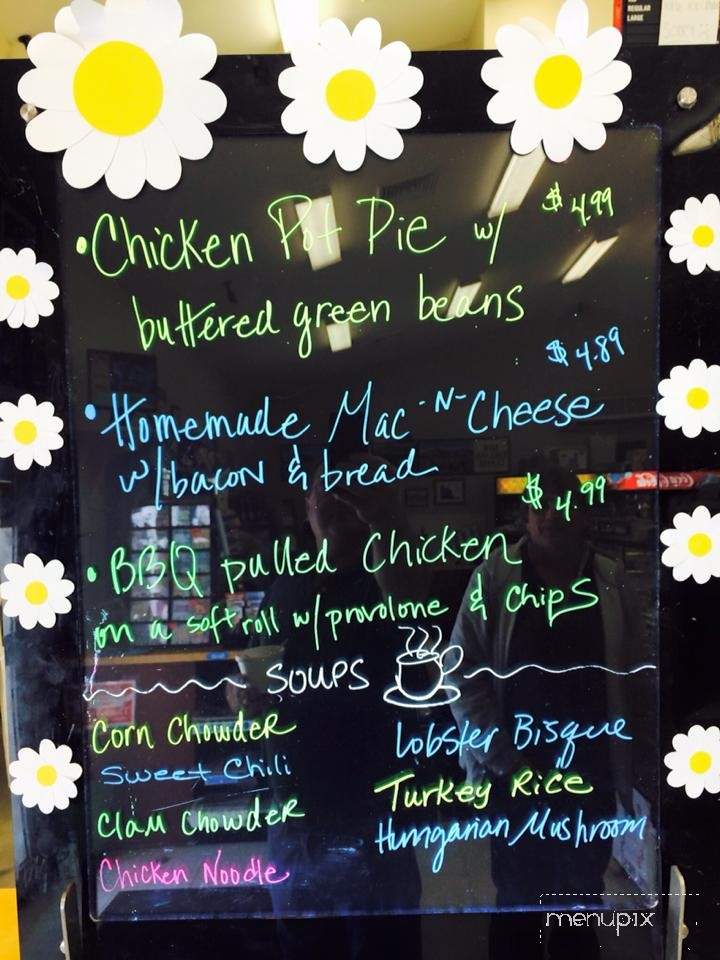 REGULAR
LARGE
• Chicken Pot Pie w/ $4.99
buttered green beans
$4.89
• Homemade Mac-N-Cheese
w/bacon & bread
$4.99
• BBQ pulled Chicken
on a soft roll w/provolone & chips
SOUPS
Corn Chowder
Sweet Chili
Clam Chowder
Chicken Noodle
Lobster Bisque
Turkey Rice
Hungarian Mushroom
menupix